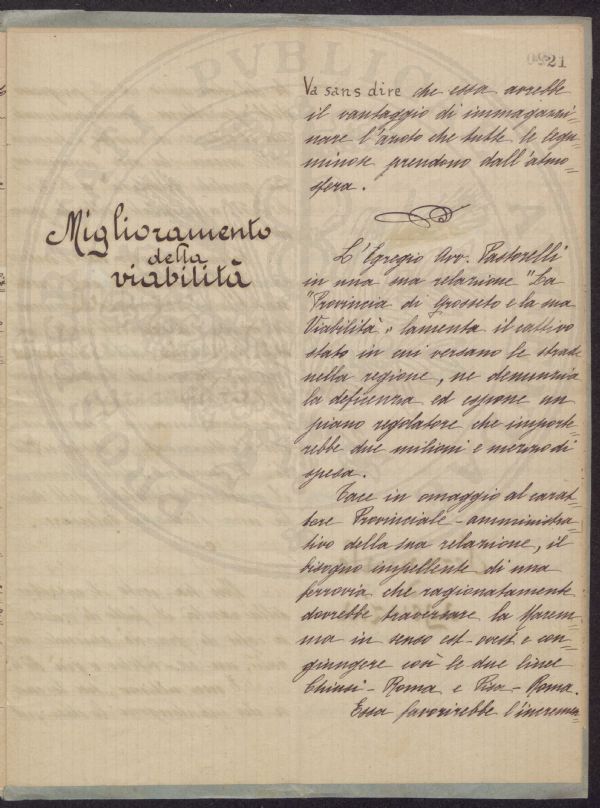 21
Miglioramento
della
viabilità
Va sans dire che essa avrebbe
il vantaggio di immagazzi-
nare l'azoto che tutte le legu-
minose prendono dall'atmo-
sfera.
L'Egregio Avv. Pastorelli
in una sua relazione "La
"Provincia di Grosseto e la sua
Viabilità" lamenta il cattivo
stato in cui versano le strade
nella regione, ne denunzia
la deficenza ed espone un
piano regolatore che importe-
rebbe due milioni e mezzo di
spesa.
Tace in omaggio al carat-
tere Provinciale-amministra-
tivo della sua relazione, il
bisogno impellente di una
ferrovia che ragionatamente
dovrebbe traversare la Marem-
ma in senso est-ovest e con-
giungere così le due linee
Chiusi-Roma e Pisa-Roma.
Essa favorirebbe l'incremen-